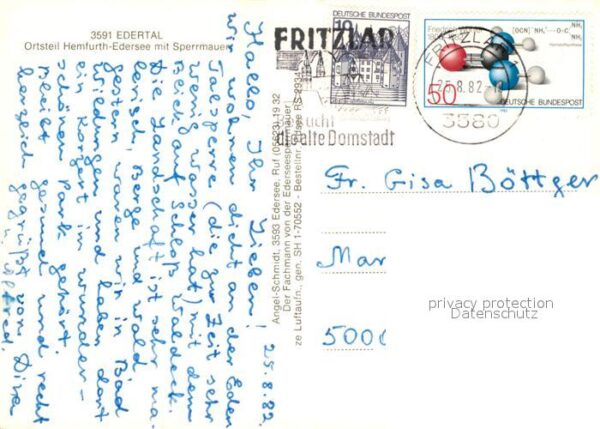 3591 EDERTAL
Ortsteil Hemfurth-Edersee mit Sperrmauer
25.8.82.
Hallo, Ihr Lieben!
wir wohnen dicht an der Eder
Talsperre (die zur Zeit sehr
wenig wasser hat) mit dem
Blick auf Schloß Waldeck.
Die Landschaft ist sehr ma-
lerisch, Berge und wald.
Gestern waren wir in Bad
Wildungen und haben dort
ein Konzert im wunder-
schönen Park gehört.
Bleibt gesund und recht
herzlich gegrüßt von Dina
Alfred.
Angel-Schmidt, 3593 Edersee, Ruf (05623) 19 32
Der Fachmann von der Ederseesperrmauer
ze Luftaufn., gen. SH 1-70552 - Bestellnr.
FRITZLAR
die alte Domstadt
10
DEUTSCHE BUNDESPOST
Friedrich
[OCN]⁻ NH₄⁺ → OC
NH₂
NH₂
50
DEUTSCHE BUNDESPOST
FRITZLA
25.8.82
3580
Fr. Gisa Böttger
Mar
500
privacy protection
Datenschutz